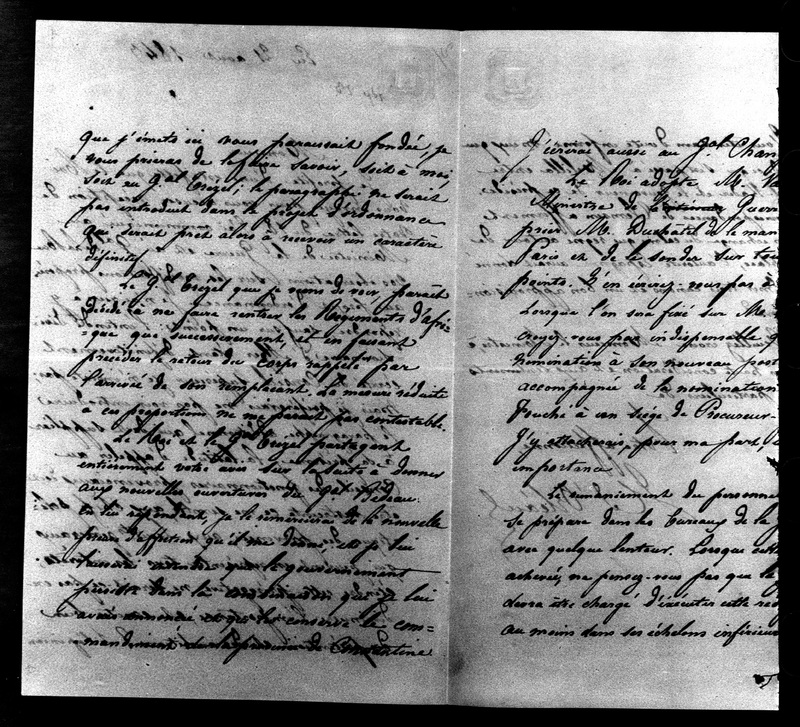 que j'émets ici vous paraissait fondée, je
vous prierais de le faire savoir, soit à moi,
soit au Gal Trezel; le paragraphe ne serait
pas introduit dans le projet d'ordonnance
qui serait prêt alors à recevoir un caractère
définitif.
Le Gal Trezel que je viens de voir paraît
décidé à ne faire rentrer les Régiments d'afri-
que que successivement, et en faisant
précéder le retour du Corps rappelé par
l'arrivée de son remplaçant. La mesure réduite
à ces proportions ne me paraît pas contestable.
Le Roi et le Gal Trezel partagent
entièrement votre avis sur la suite à donner
aux nouvelles ouvertures du Gal Bedeau.
En lui répondant, je le remercierai de la nouvelle
preuve d'affection qu'il me donne, et je lui
laisserai entendre que le gouvernement
persiste dans la
avait annoncé et qu'il conserve le com-
mandement de la province de Constantine
J'écrirai aussi au Gal Chan
Le Roi adopte M. Va
Ministre de la Guerre
prier M. Duchatel de le man
Paris et de le sonder sur tou
points. N'en écrivez-vous pas à
Lorsque l'on sera fixé sur M.
croyez-vous pas indispensable q
nomination à son nouveau post
accompagnée de la nomination
Fouché à un siège de Procureur-
J'y attacherais, pour ma part,
importance
Le remaniement du personne
se prépare dans les bureaux de la
avec quelque lenteur. Lorsque cette
achevée, ne pensez-vous pas que le
devra être chargé d'exécuter cette
au moins dans ses échelons inférieur